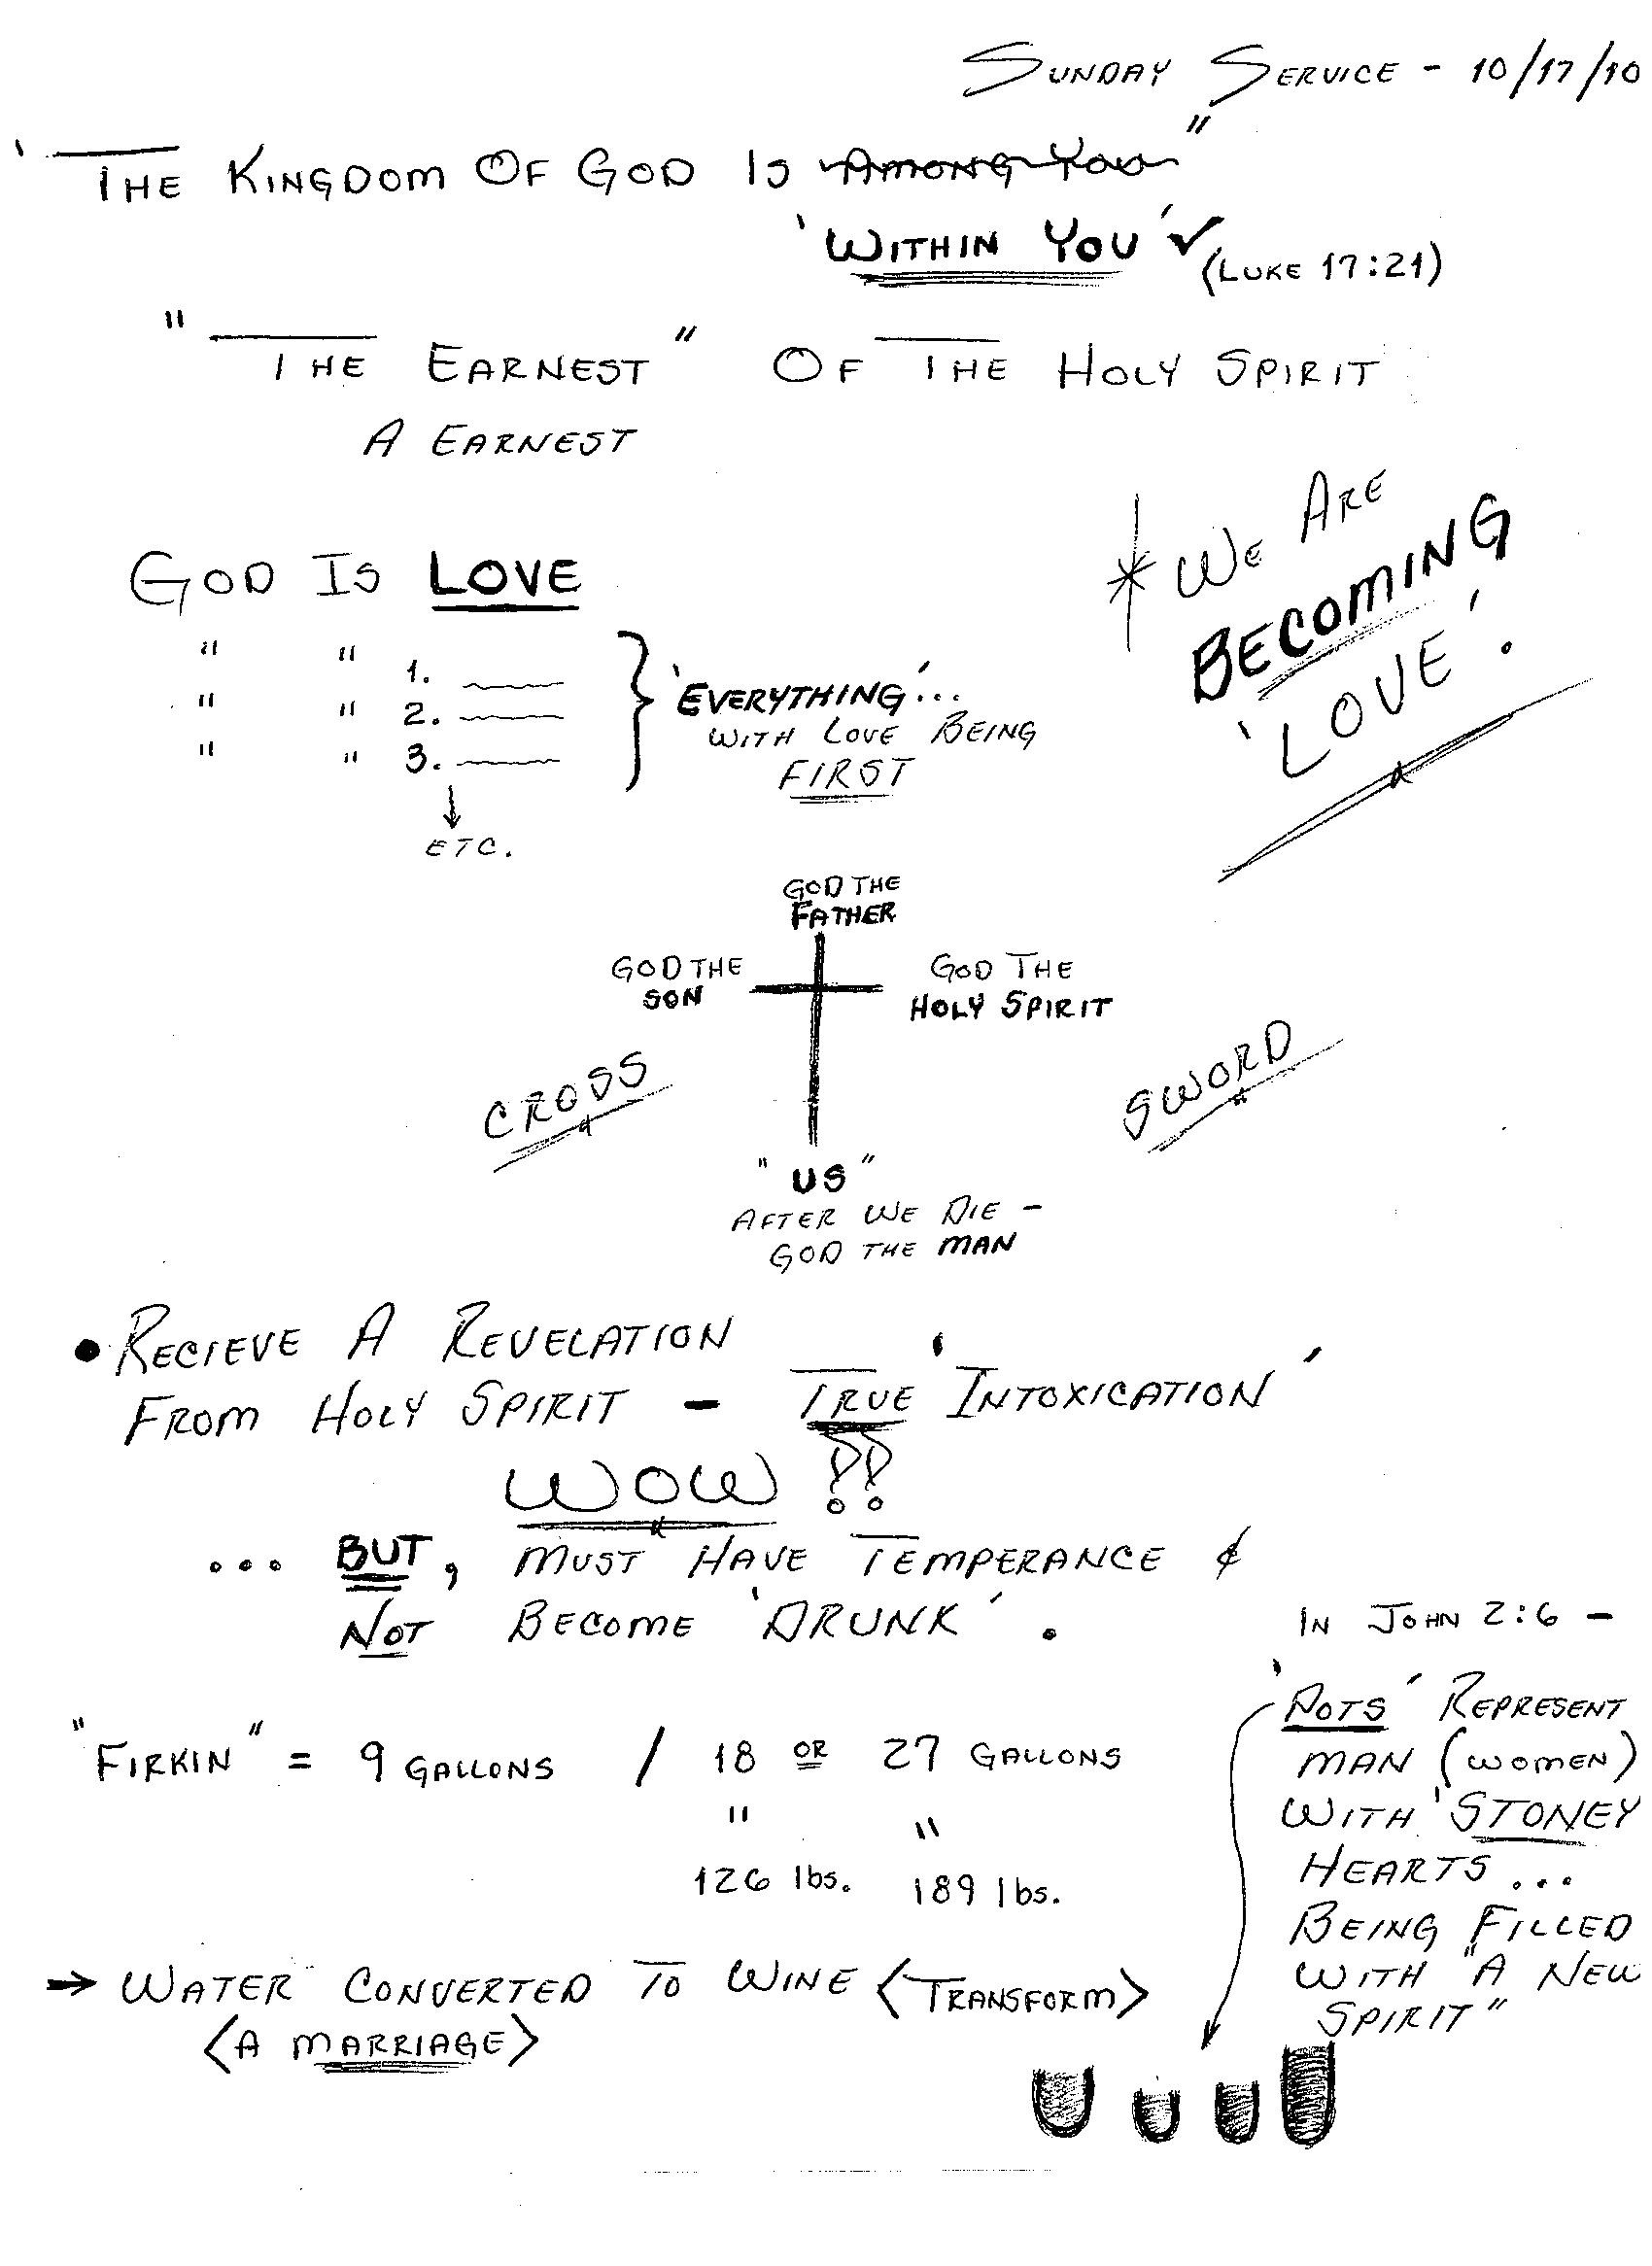 SUNDAY SERVICE - 10/17/10
'THE KINGDOM OF GOD IS AMONG YOU"
'WITHIN YOU' ✓ (LUKE 17:21)
"THE EARNEST" OF THE HOLY SPIRIT
A EARNEST
* WE ARE
BECOMING
'LOVE'.
GOD IS LOVE
" " 1.
" " 2.
" " 3.
↓
ETC.
} 'EVERYTHING'...
WITH LOVE BEING
FIRST
GOD THE
FATHER
GOD THE
SON
GOD THE
HOLY SPIRIT
CROSS
SWORD
"US"
AFTER WE DIE -
GOD THE MAN
• RECIEVE A REVELATION
FROM HOLY SPIRIT - TRUE 'INTOXICATION'
WOW!!
... BUT, MUST HAVE TEMPERANCE &
NOT BECOME 'DRUNK'.
"FIRKIN" = 9 GALLONS / 18 OR 27 GALLONS
" "
126 lbs. 189 lbs.
→ WATER CONVERTED TO WINE <TRANSFORM>
<A MARRIAGE>
IN JOHN 2:6 -
'POTS' REPRESENT
MAN (WOMEN)
WITH 'STONEY
HEARTS...
BEING FILLED
WITH "A NEW
SPIRIT"